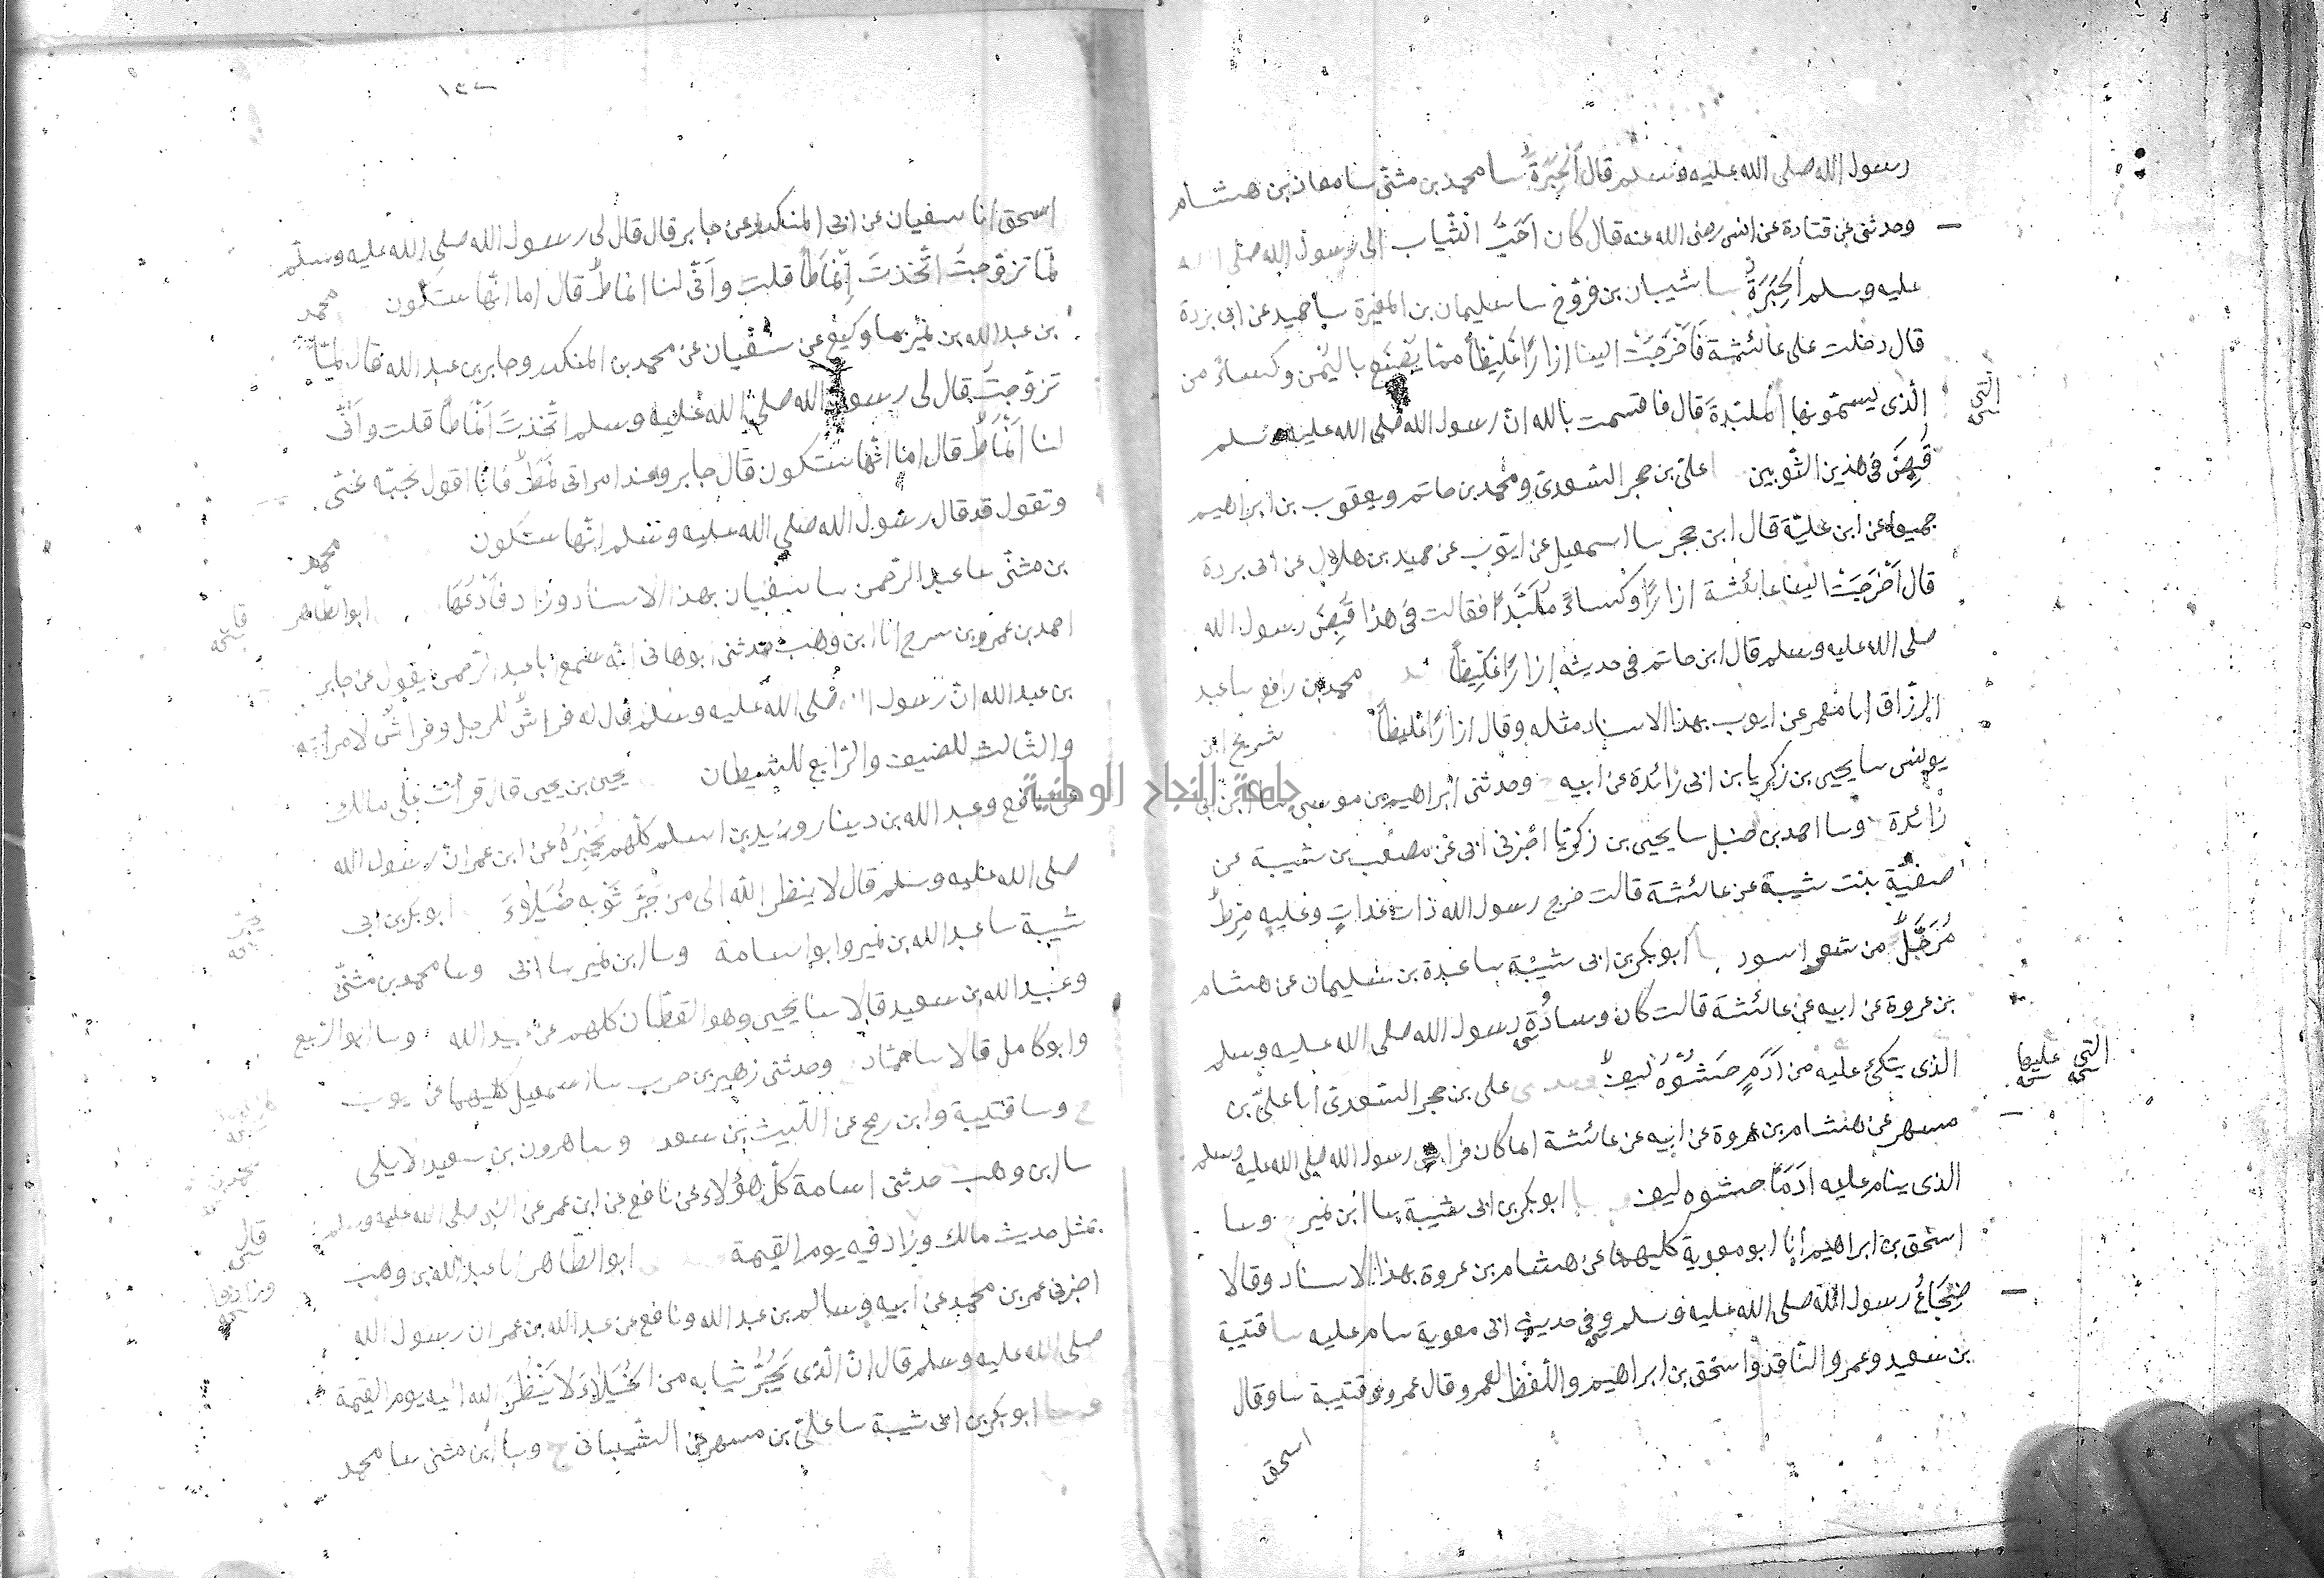 رسول الله صلى الله عليه وسلم قال الحِبَرَةُ سا محمد بن مثنى سا معاذ بن هشام
وحدثنى عن قتادة عن انس رضى الله عنه قال كان اَحَبُّ الثياب الى رسول الله صلى الله
عليه وسلم الحِبَرَةُ سا شيبان بن فروخ سا سليمان بن المغيرة سا حميد عن ابى بردة
قال دخلت على عائشة فَاَخْرَجَتْ الينا ازارًا غليظًا مما يُصْنَع باليمن وكساءً من
الّذى يسمّونها الملبّدةَ قال فاقسمت بالله انّ رسول الله صلى الله عليه وسلم
التى
قُبِضَ فى هذين الثوبين علىّ بن حجر السّعدى ومحمد بن حاتم ويعقوب بن ابراهيم
جميعا عن ابن عليّة قال ابن حجر سا اسمعيل عن ايّوب عن حميد بن هلال عن ابى بردة
قال اَخْرَجَتْ الينا عائشة ازارًا وكساءً مُلَبَّدًا فقالت فى هذا قُبِضَ رسول الله
صلى الله عليه وسلم قال ابن حاتم فى حديثه ازارًا غليظًا محمد بن رافع سا عبد
الرزّاق انا معمر عن ايوب بهذا الاسناد مثله وقال ازارًا غليظًا شريح ابن
يونس سا يحيى بن زكريا بن ابى زائدة عن ابيه وحدثنى ابراهيم بن موسى سا ابن ابى
زائدة وسا احمد بن حنبل سا يحيى بن زكريّا اخبرنى ابى عن مصعب بن شيبة عن
صفيّة بنت شيبة عن عائشة قالت خرج رسول الله ذات غداتٍ وعليه مِرْطٌ
مُرَحَّلٌ من شعر اسود ابو بكر بن ابى شيبة سا عبدة بن سليمان عن هشام
بن عروة عن ابيه عن عائشة قالت كان وسادُة رسول الله صلى الله عليه وسلم
الذى يتكئ عليه من اَدَمٍ حَشْوُهُ ليفٌ على بن حجر السّعدى انا علىّ بن
التى عليها
مسهر عن هشام بن عروة عن ابيه عن عائشة انما كان فراش رسول الله صلى الله عليه وسلم
الذى ينام عليه اَدَمًا حشوه ليف ابو بكر بن ابى شيبة سا ابن نمير وسا
اسحق بن ابراهيم انا ابو معوية كليهما عن هشام بن عروة بهذا الاسناد وقالا
ضِجَاعُ رسول الله صلى الله عليه وسلم وفى حديث ابى معوية ينام عليه سا قتيبة
بن سعيد وعمرو النّاقد واسحق بن ابراهيم واللّفظ لعمرو قال عمرو وقتيبة سا وقال
اسحق
١٣٧
اسحق انا سفيان عن ابى المنكدر عن جابر قال قال لى رسول الله صلى الله عليه وسلّم
لمّا تزوّجتُ اتّخذتَ اَنْمَاطًا قلت وانّى لنا انماطٌ قال اما انّها ستكون محمد
بن عبد الله بن نمير سا وكيع عن سفيان عن محمد بن المنكدر وجابر بن عبد الله قال لمّا
تزوجتُ قال لى رسول الله صلى الله عليه وسلم اتّخذتَ اَنْمَاطًا قلت واَنّى
لنا اَنْمَاطٌ قال اما انّها ستكون قال جابر وعند امراتى نمطٌ فانا اقول نحّيه عنّى
وتقول قد قال رسول الله صلى الله عليه وسلم انّها ستكون محمد
بن مثنّى سا عبد الرّحمن سا سفيان بهذا الاسناد وزاد فَاَدَعُهَا ابو الطّاهر
احمد بن عمرو بن سرح انا ابن وهب حدثنى ابو هانى انّه سمع ابا عبد الرحمن يقول عن جابر
بن عبد الله انّ رسول الله صلى الله عليه وسلم قال له فراشٌ للرجل وفراشٌ لامرأته
والثّالث للضيف والرّابع للشيطان يحيى بن يحيى قال قرأت على مالك
عن نافع وعبد الله بن دينار وزيد بن اسلم كلّهم يُخْبِرُهُ عن ابن عمر انّ رسول الله
صلى الله عليه وسلم قال لا ينظر الله الى من جَرَّ ثَوْبه خُيَلاءَ ابو بكر بن ابى
شيبة سا عبد الله بن نمير وابو اسامة وسا ابن نمير سا ابى وسا محمد بن مثنّى
وعبيد الله بن سعيد قالا سا يحيى وهو القطان كلهم عن عبيد الله وسا ابو الرّبيع
وابو كامل قالا سا حمّاد وحدثنى زهير بن حرب سا اسمعيل كليهما عن ايوب
ح وسا قتيبة وابن رمح عن اللّيث بن سعد وسا هرون بن سعيد الايلى
سا ابن وهب حدثنى اسامة كلّ هؤلاء عن نافع عن ابن عمر عن النبى صلى الله عليه وسلم
بمثل حديث مالك وزاد فيه يوم القيمة ابو الطّاهر انا عبد الله بن وهب
قال
وزادوا
اخبرنى عمر بن محمد عن ابيه وسالم بن عبد الله ونافع عن عبد الله بن عمر ان رسول الله
صلى الله عليه وسلم قال انّ الّذى يَجُرُّ ثيابه من الخُيَلاءِ لا يَنْظُرُ الله اليه يوم القيمة
ابو بكر بن ابى شيبة سا علىّ بن مسهر عن الشّيبانى ح وسا ابن مثنى سا محمد
جامعة النجاح الوطنية